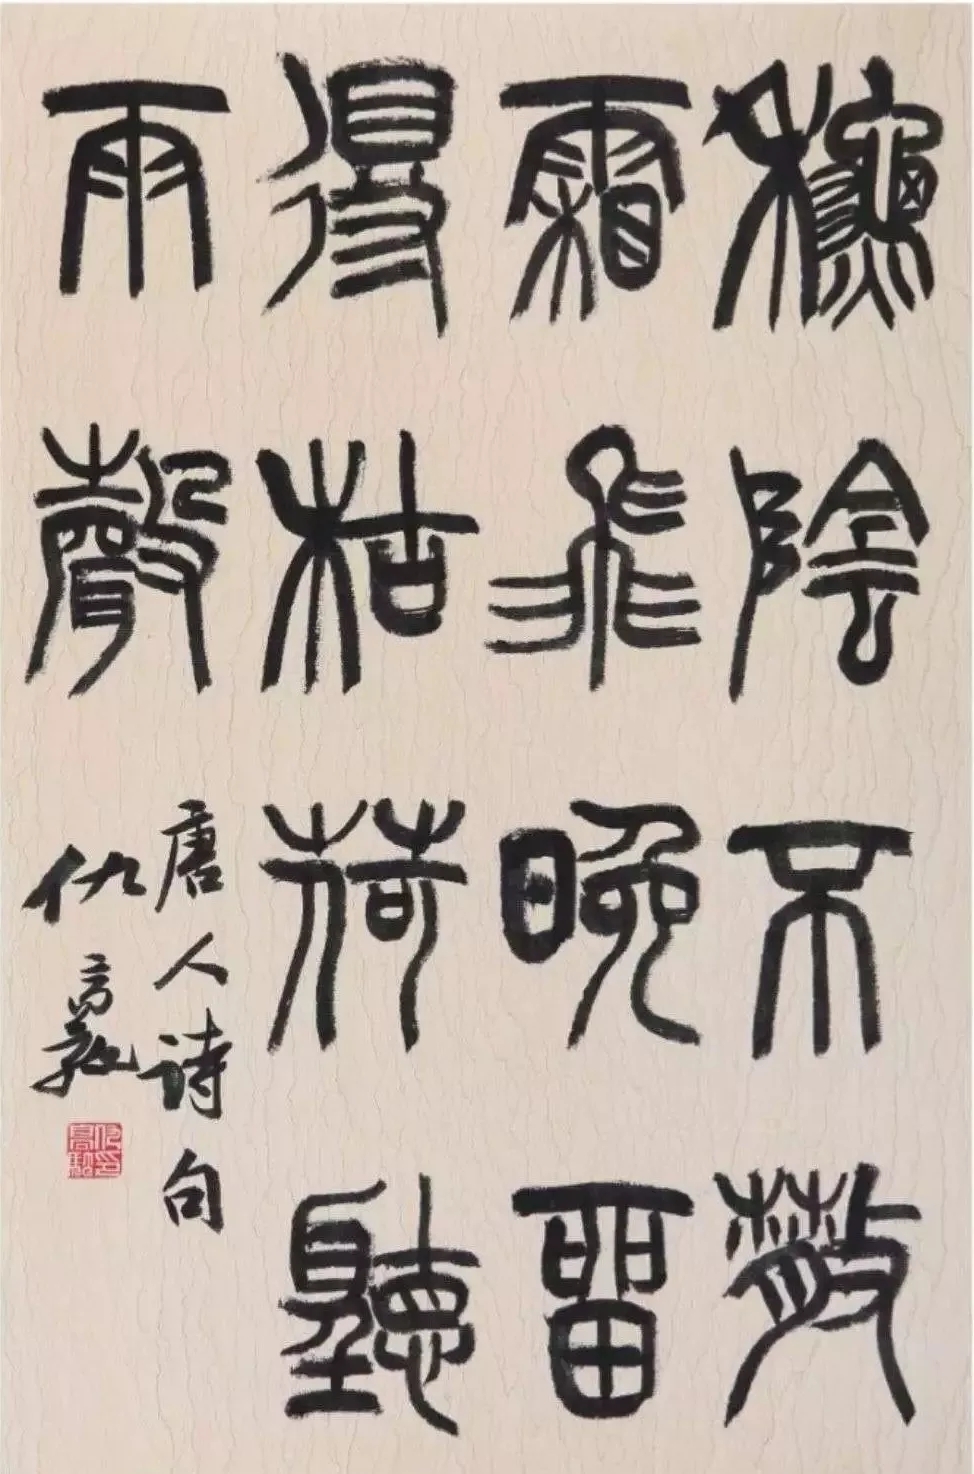 龝陰不散
霜飛晚留
得枯荷聽
雨聲
唐人诗句
仇高驰